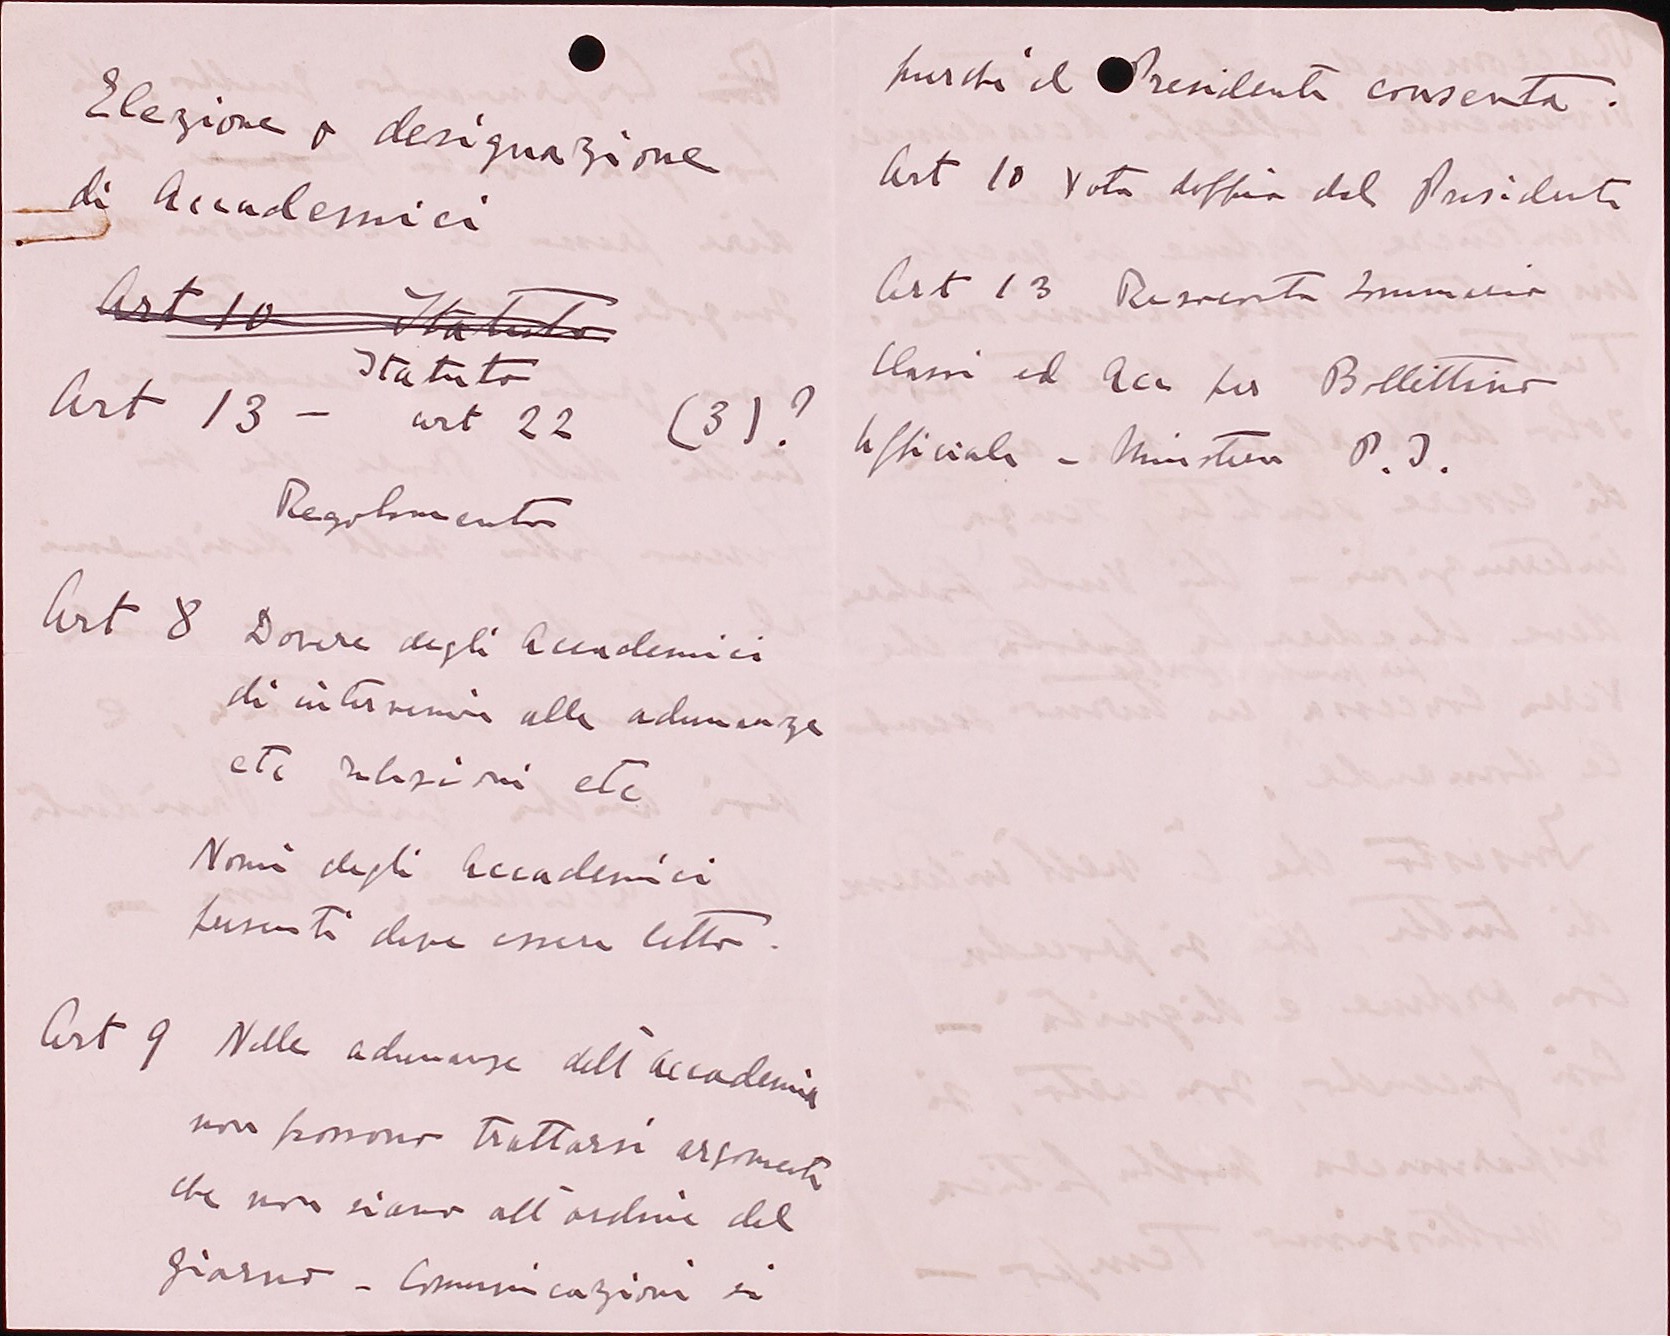 Elezione o designazione
di Accademici
Art 10 Statuto
Statuto
Art 13 - art 22 (3)?
Regolamento
Art 8 Dovere degli Accademici
di intervenire alle adunanze
etc relazioni etc
Nomi degli Accademici
presenti deve essere letto.
Art 9 Nelle adunanze dell'Accademia
non possono trattarsi argomenti
che non siano all'ordine del
giorno - Comunicazioni si
purché il Presidente consenta.
Art 10 Voto doppio del Presidente
Art 13 Resoconto Sommario
Classi ed Acc per Bollettino
Ufficiale - Ministero P.I.